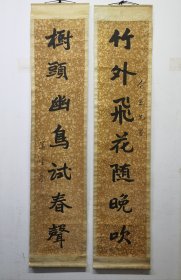 竹外飛花随晚吹
樹頭幽鳥試春聲